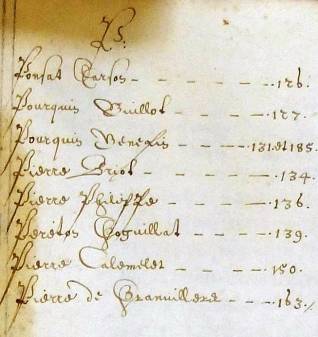 P:
Ponsat Carson - - - - - - 126.
Pourquin Buillot - - - - 127.
Pourquin Benefin - - - - 131 et 185.
Pierre Briot - - - - - 134.
Pierre Philippe - - - - 136.
Peretos Coguillat - - - 139.
Pierre Calemilet - - - 150.
Pierre de Granvillers - - - 163.